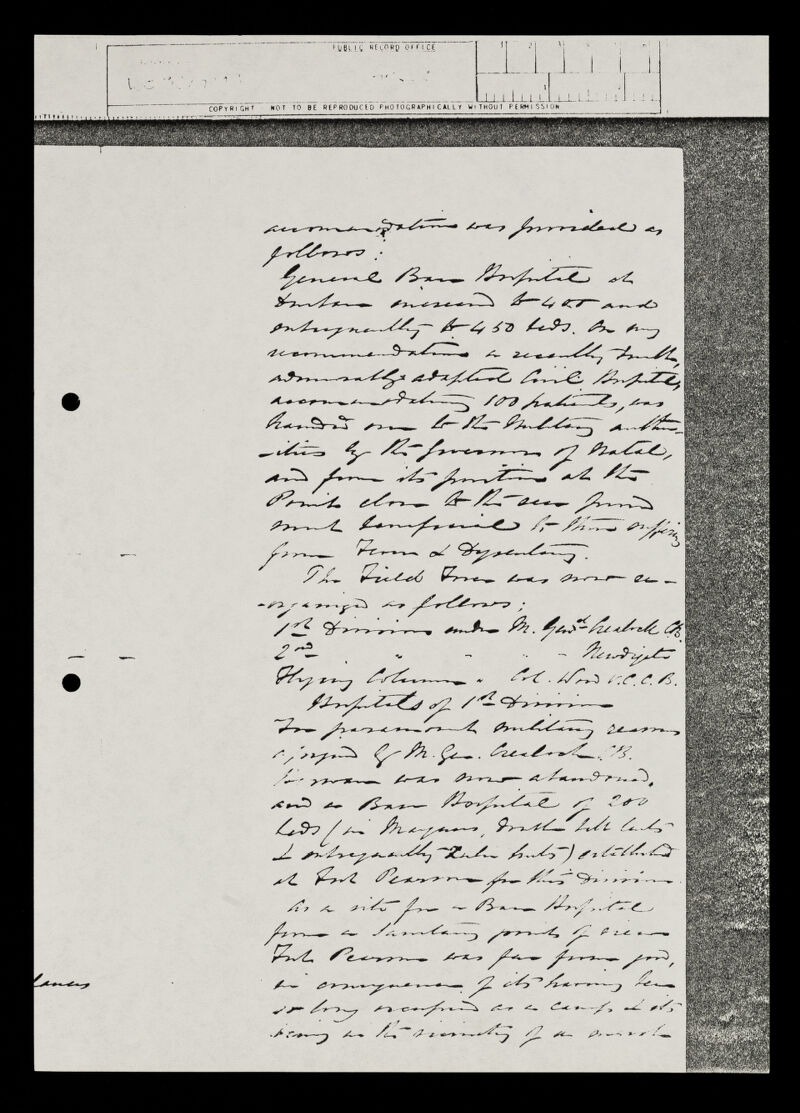 PUBLIC RECORD OFFICE
COPYRIGHT NOT TO BE REPRODUCED PHOTOGRAPHICALLY WITHOUT PERMISSION
accommodation was provided as
follows:
General Base Hospital at
Durban increased to 400 and
subsequently to 450 beds. On my
recommendation a recently built,
admirably adapted Civil Hospital,
accommodating 100 patients, was
handed over to the Military author-
-ities by the Governor of Natal,
and from its position at the
Point close to the sea proved
most beneficial to those suffering
from Fever & Dysentery.
The Field Force was now re-
-organized as follows;
1st Division under M. Genl Crealock CB.
2nd " " " - Newdigate
Flying Column " Col. Wood V.C. C.B.
Hospitals of 1st Division
For paramount military reasons
assigned by M. Gen. Crealock CB.
was now abandoned,
and a Base Hospital of 200
beds (in Marquees, double bell tents
& subsequently Zulu huts) established
at Fort Pearson for this Division.
As a site for a Base Hospital
from a Sanitary point of view
Fort Pearson was far from good,
in consequence of its having been
so long occupied as a camp & its
being in the vicinity of a
lances